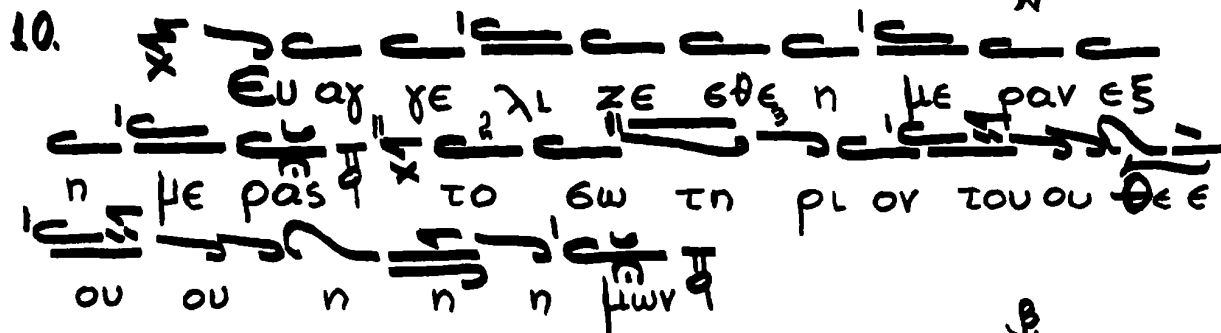 10.
Ευ αγ γε λι ζε σθε η με ραν εξ
η με ρας το σω τη ρι ον του ου Θε ε
ου ου η η η μων